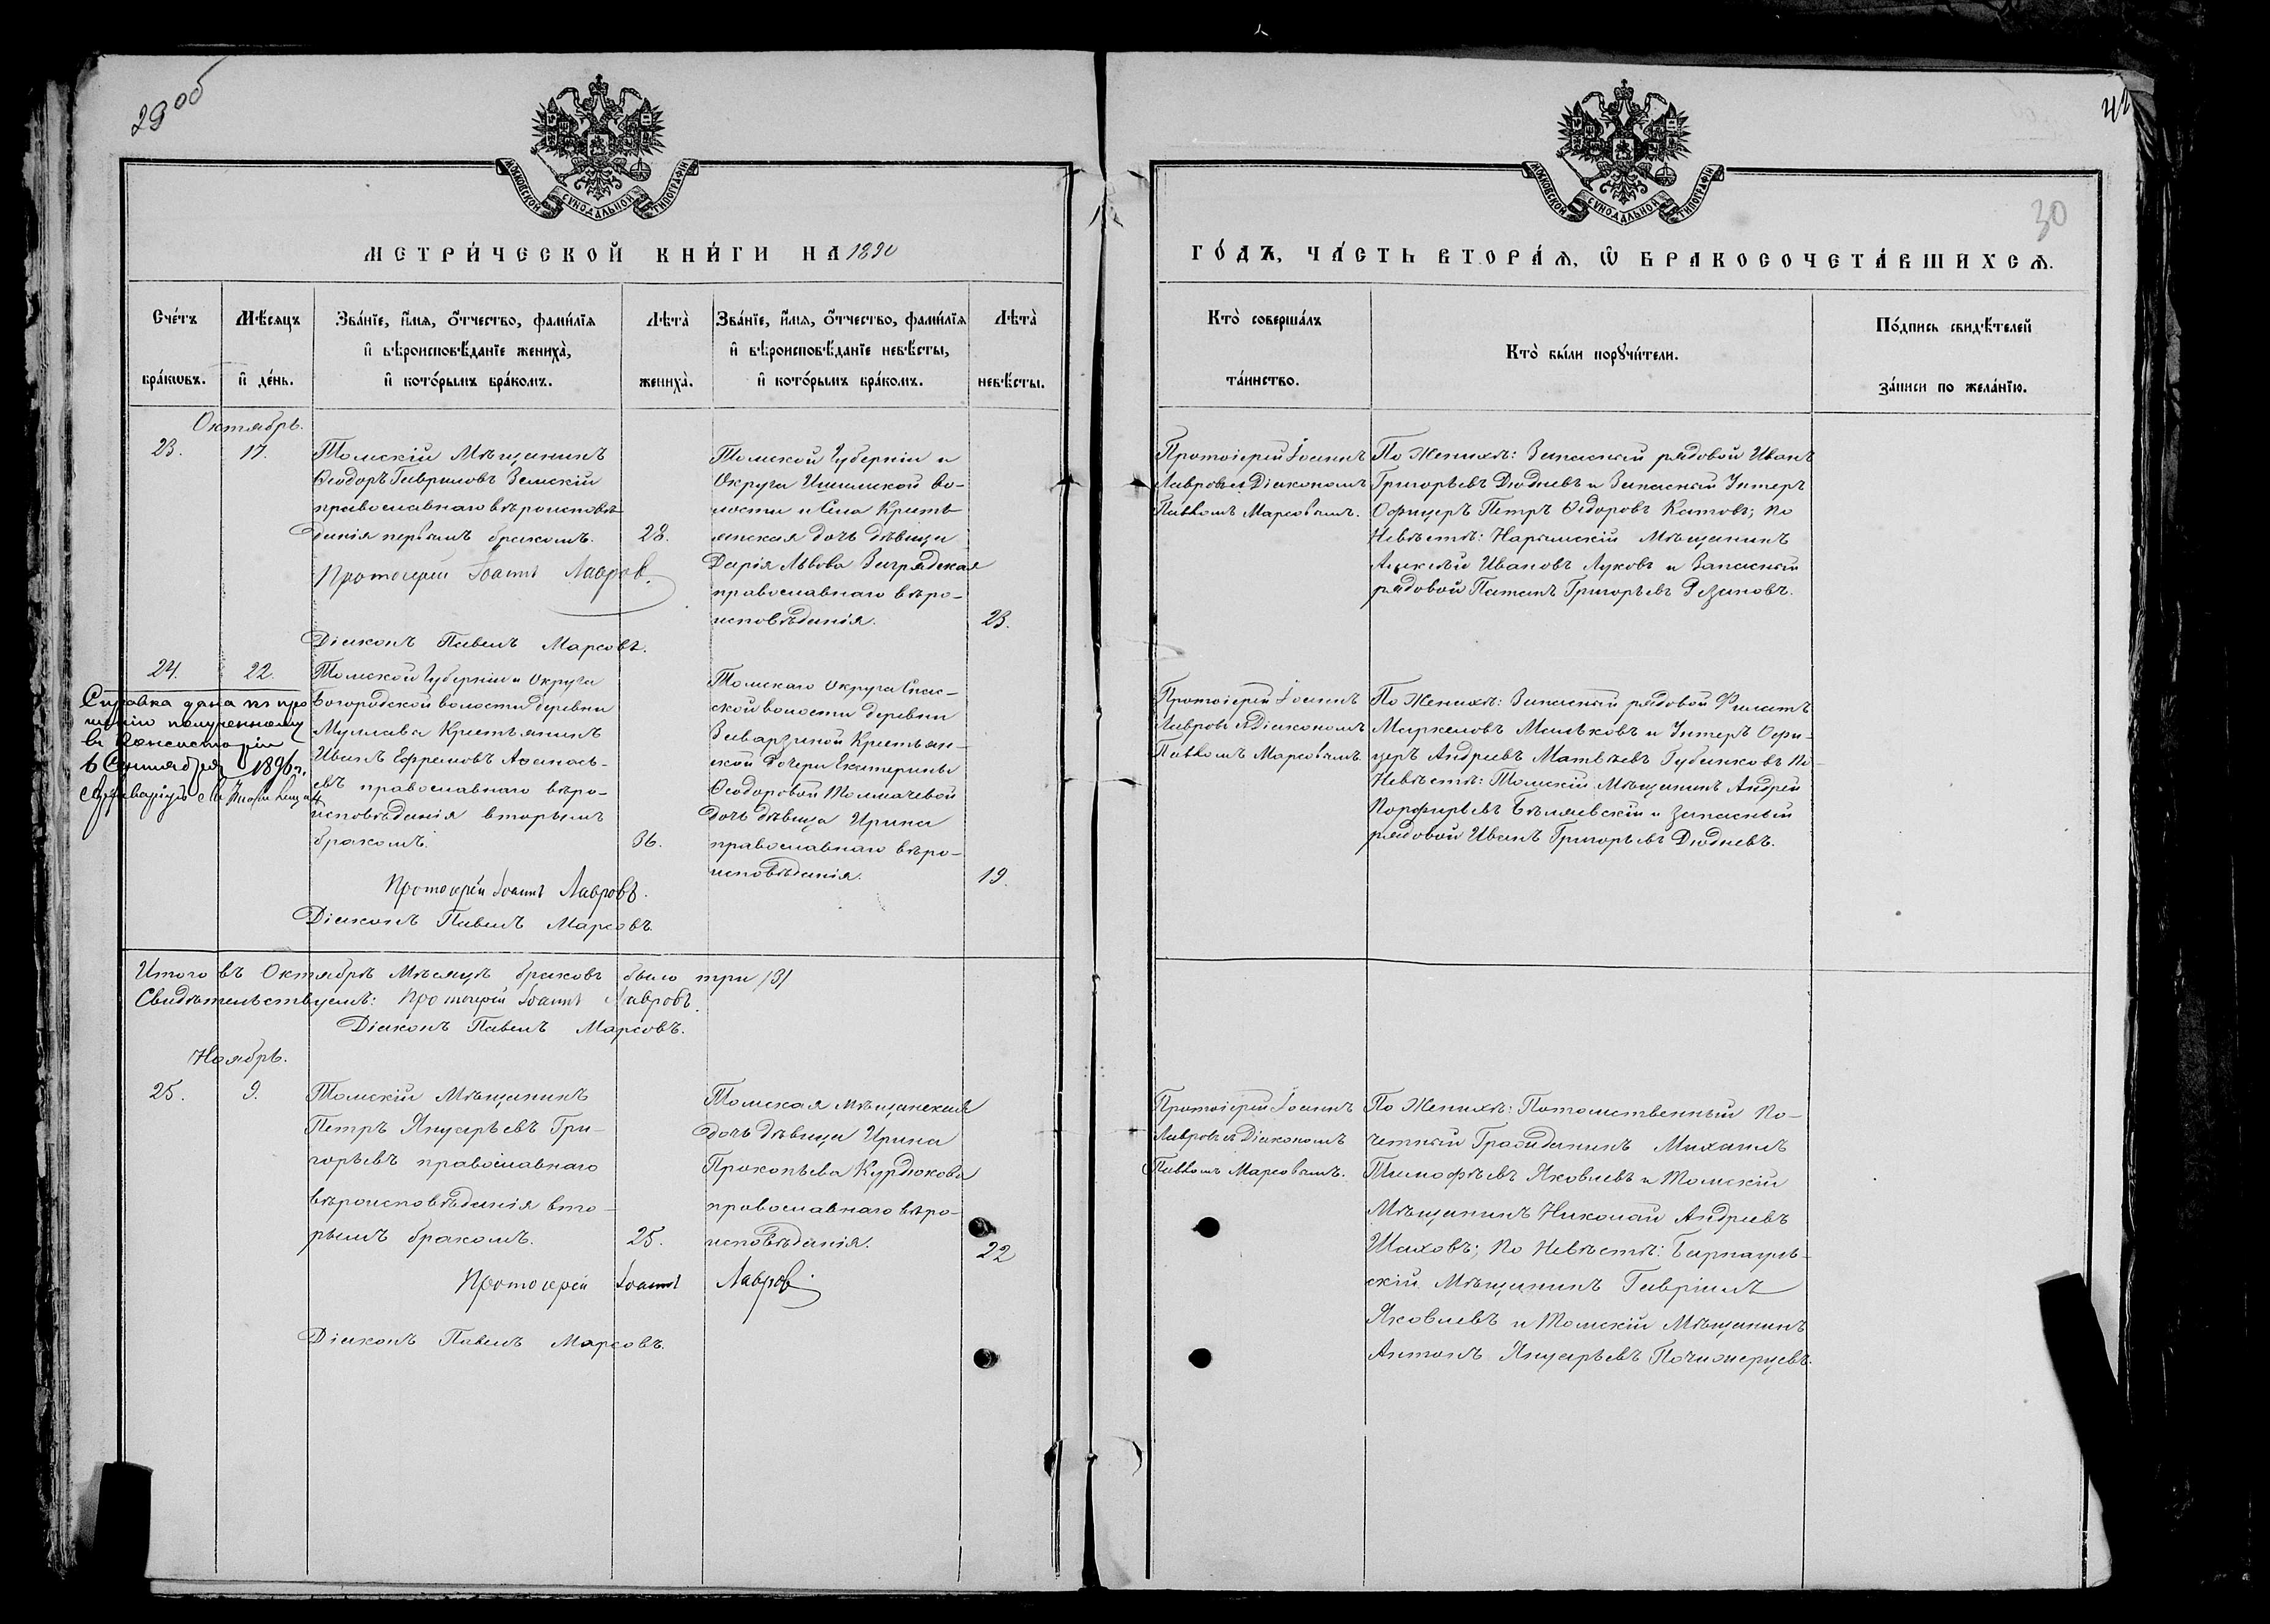 29об
МОСКОВСКОЙ СѴНОДАЛЬНОЙ ТИПОГРАФІИ
МЕТРИ́ЧЕСКОЙ КНИ́ГИ НА 1890
Сче́тъ бра́кѡвъ.
Мѣ́сяцъ и҆ де́нь.
Зва́нїе, и҆́мя, ѻ҆́тчество, фами́лїя
и҆ вѣроисповѣ́данїе жениха̀,
и҆ кото́рымъ бра́комъ.
Лѣта̀ жениха̀.
Зва́нїе, и҆́мя, ѻ҆́тчество, фами́лїя
и҆ вѣроисповѣ́данїе невѣ́сты,
и҆ кото́рымъ бра́комъ.
Лѣта̀ невѣ́сты.
Октябрь.
23.
17.
Томскій Мѣщанинъ
Ѳеодоръ Гавриловъ Земскій
православнаго вѣроисповѣ-
данія первымъ бракомъ.
28.
Протоіерей Іоаннъ Лавров.
Діаконъ Павелъ Марсовъ.
Томской Губерніи и
Округа Ишимской во-
лости и Села Кресть
янская дочь дѣвица
Дарія Львова Заградская
православнаго вѣро-
исповѣданія.
23.
24.
22.
Справка дана по про
шенію полученному
въ Консисторіи
6 Сентября 1896 г.
Томской Губерніи и Округа
Богородской волости деревни
Крестьянинъ
Иванъ Ефремовъ Аѳанась-
евъ православнаго вѣро-
исповѣданія вторымъ
бракомъ.
36.
Протоіерей Іоаннъ Лавровъ.
Діаконъ Павелъ Марсовъ.
Томскаго Округа Спас-
ской волости деревни
Заварзиной Крестьян-
ской дочери Екатерины
Ѳеодоровой Толмачевой
дочь дѣвица Ирина
православнаго вѣро-
исповѣданія.
19.
Итого въ Октябрѣ Мѣсяцѣ браковъ было три /3/
Свидѣтельствуемъ: Протоіерей Іоаннъ Лавровъ.
Діаконъ Павелъ Марсовъ.
Ноябрь.
25.
9.
Томскій Мѣщанинъ
Петръ Януарьевъ Гри-
горьевъ православнаго
вѣроисповѣданія вто-
рымъ бракомъ.
25.
Протоіерей Іоаннъ Лавров
Діаконъ Павелъ Марсовъ.
Томская мѣщанская
дочь дѣвица Ирина
Прокопьева Курдюкова
православнаго вѣро-
исповѣданія.
22
30
МОСКОВСКОЙ СѴНОДАЛЬНОЙ ТИПОГРАФІИ
ГО́ДЪ, ЧА́СТЬ ВТОРА́Ѧ, Ѡ҆ БРАКОСОЧЕТА́ВШИХСѦ.
Кто̀ соверша́лъ
та́инство.
Кто̀ бы́ли порꙋчи́тели.
По́дпись свидѣ́телей
за́писи по жела́нїю.
Протоіерей Іоаннъ
Лавровъ съ Діакономъ
Павломъ Марсовымъ.
По Женихѣ: Запасный рядовой Иванъ
Григорьевъ Дюдневъ и Запасный Унтеръ
Офицеръ Петръ Ѳедоровъ Катовъ; по
Невѣстѣ: Нарымскій Мѣщанинъ
Алексѣй Ивановъ Луковъ и Запасный
рядовой Потапъ Григорьевъ Резановъ.
Протоіерей Іоаннъ
Лавровъ съ Діакономъ
Павломъ Марсовымъ.
По Женихѣ: Запасный рядовой Филатъ
Маркеловъ Мальковъ и Унтеръ Офи-
церъ Андреевъ Матвѣевъ Губенковъ По
Невѣстѣ: Томскій Мѣщанинъ Андрей
Порфирьевъ Бѣляевскій и запасный
рядовой Иванъ Григорьевъ Дюдневъ.
Протоіерей Іоаннъ
Лавровъ съ Діакономъ
Павломъ Марсовымъ.
По Женихѣ: Потомственный По-
четный Гражданинъ Михаилъ
Тимофѣевъ Яковлевъ и Томскій
Мѣщанинъ Николай Андреевъ
Шаховъ; По Невѣстѣ: Барнауль-
скій Мѣщанинъ Гавріилъ
Яковлевъ и Томскій Мѣщанинъ
Антонъ Януарьевъ